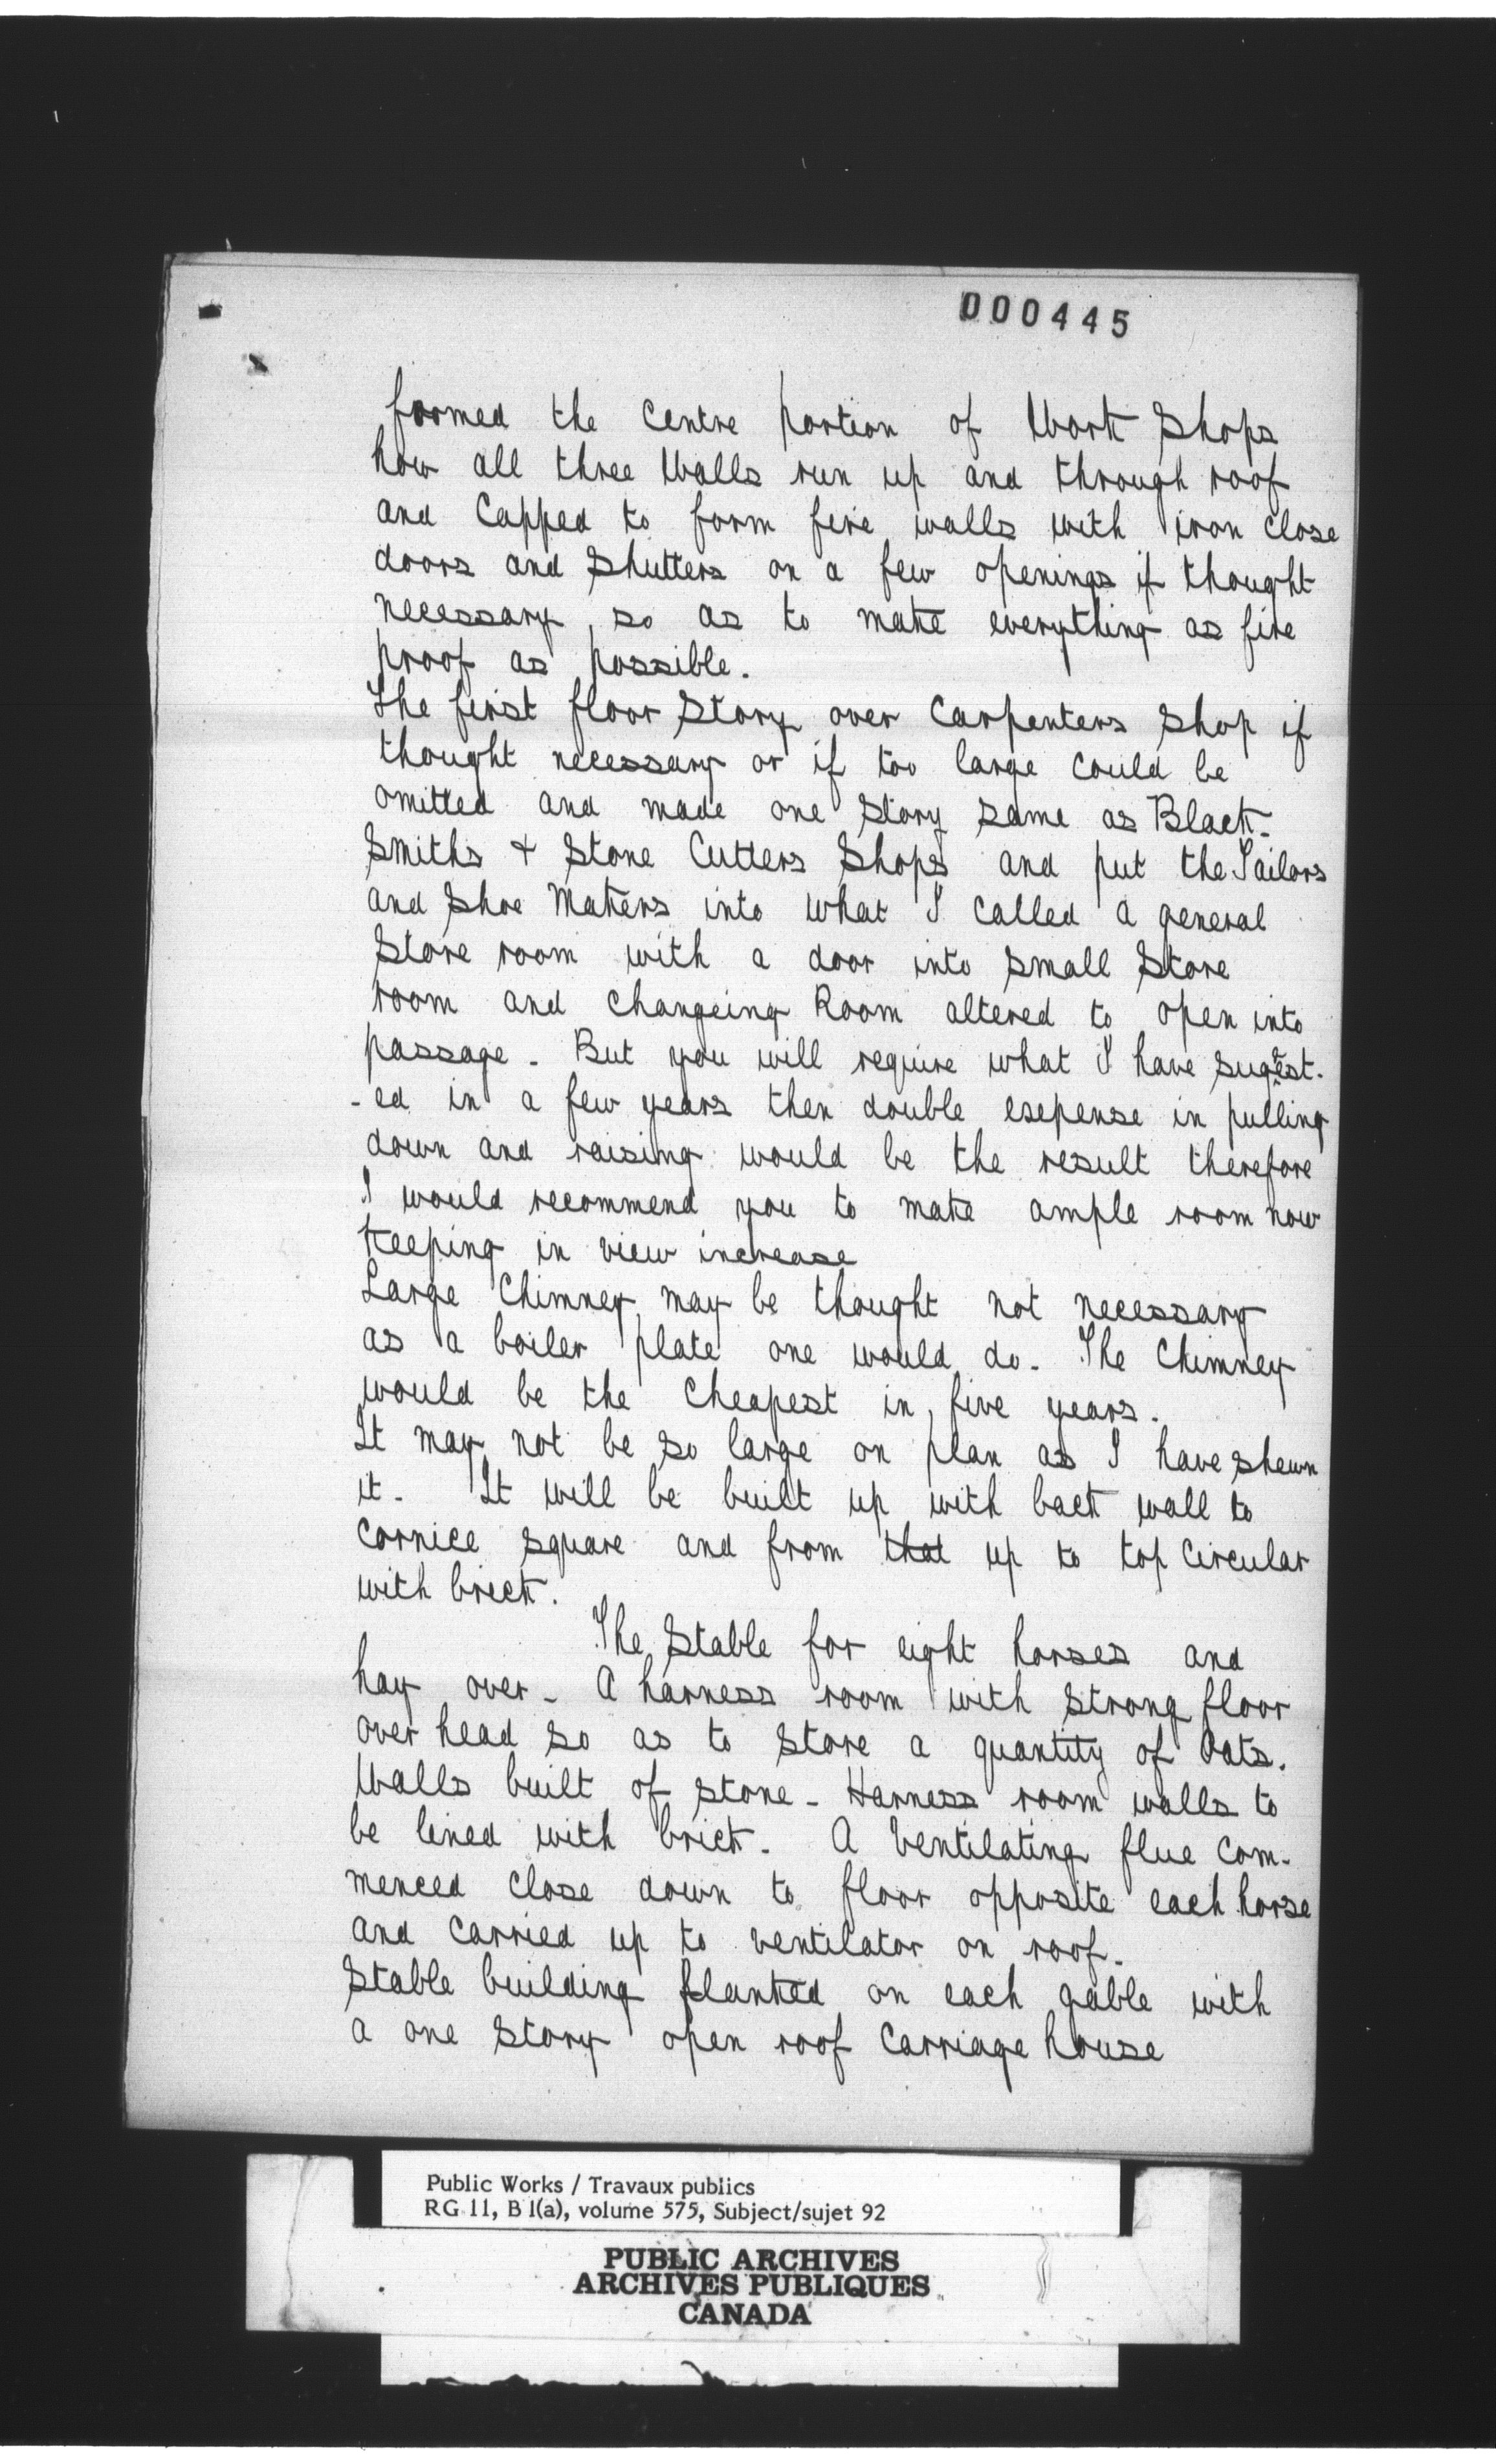 000445
formed the Centre portion of Work Shops
how all three Walls run up and through roof
and Capped to form fire walls with iron close
doors and Shutters on a few openings if thought
necessary, so as to make everything as fire
proof as possible.
The first floor Story over Carpenters Shop if
thought necessary or if too large could be
omitted and made one Story same as Black-
Smiths + Stone Cutters Shops and put the Tailors
and Shoe Makers into what I called a general
Store room with a door into small Store
room and Changeing Room altered to open into
passage - But you will require what I have sugest-
-ed in a few years then double esepense in pulling
down and raising would be the result therefore
I would recommend you to make ample room now
keeping in view increase
Large Chimney may be thought not necessary
as a boiler plate one would do - The Chimney
would be the Cheapest in five years.
It may not be so large on plan as I have shewn
it - It will be built up with back wall to
Cornice square and from that up to top Circular
with brick.
The Stable for eight horses and
hay over - A harness room with Strong floor
over head so as to Store a quantity of Oats.
Walls built of stone - Harness room walls to
be lined with brick. A Ventilating flue com-
menced close down to floor opposite each horse
and Carried up to ventilator on roof.
Stable building flanked on each gable with
a one Story open roof Carriage house
Public Works / Travaux publics
RG 11, B 1(a), volume 575, Subject/sujet 92
PUBLIC ARCHIVES
ARCHIVES PUBLIQUES
CANADA